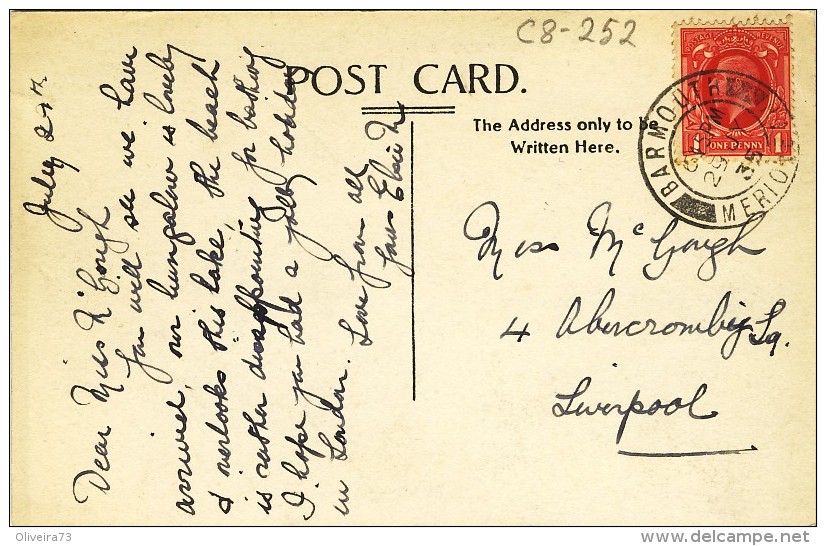 C8-252
POST CARD.
The Address only to be
Written Here.
POSTAGE REVENUE
1D ONE PENNY 1D
BARMOUTH
PM
29
35
MERION
July 29th
Dear Miss McGough
You will see we have
arrived, our bungalow is lovely
& overlooks this lake. The beach
is rather disappointing for bathing
I hope you had a jolly holiday
in London. Love from all
Yours Elsie
Miss McGough
4 Abercromby Sq.
Liverpool
Oliveira73
delcampe.net